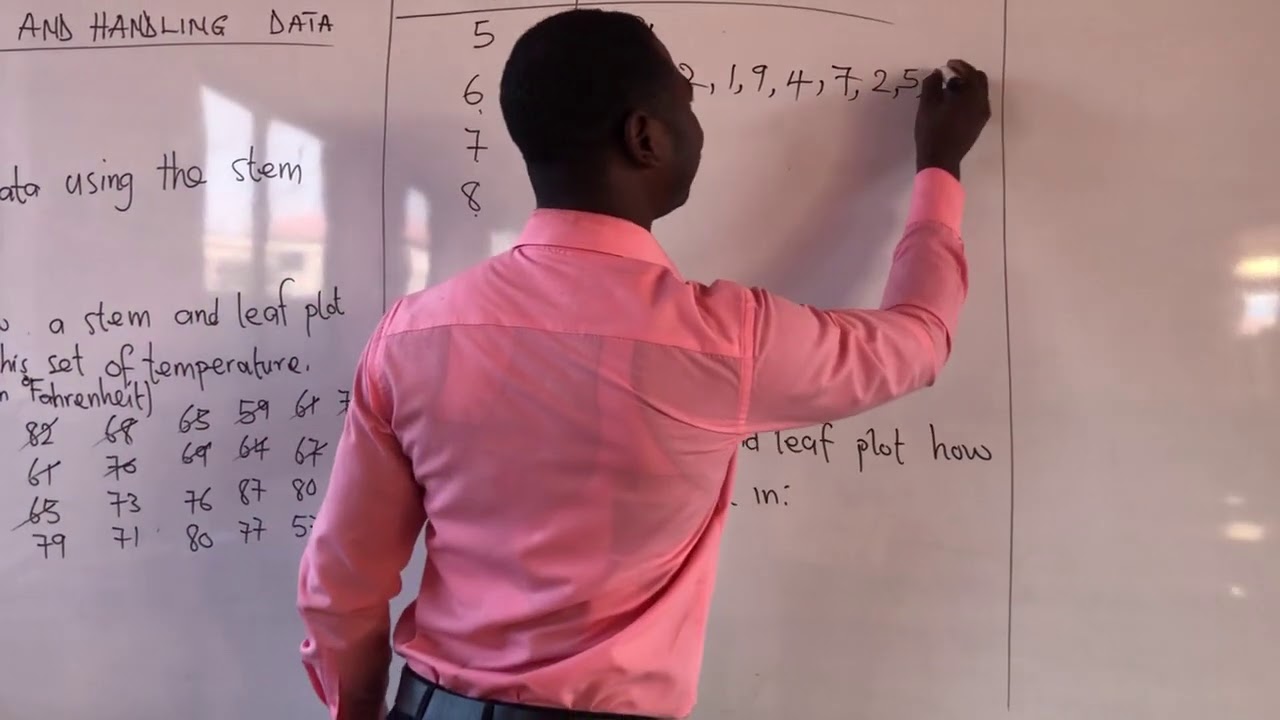 AND HANDLING DATA
using the stem
a stem and leaf plot
set of temperature.
Fahrenheit)
82 68 65 59 61
61 70 69 64 67
65 73 76 87 80
79 71 80 77
5
6 2, 1, 9, 4, 7, 2, 5,
7
8
leaf plot how
in: